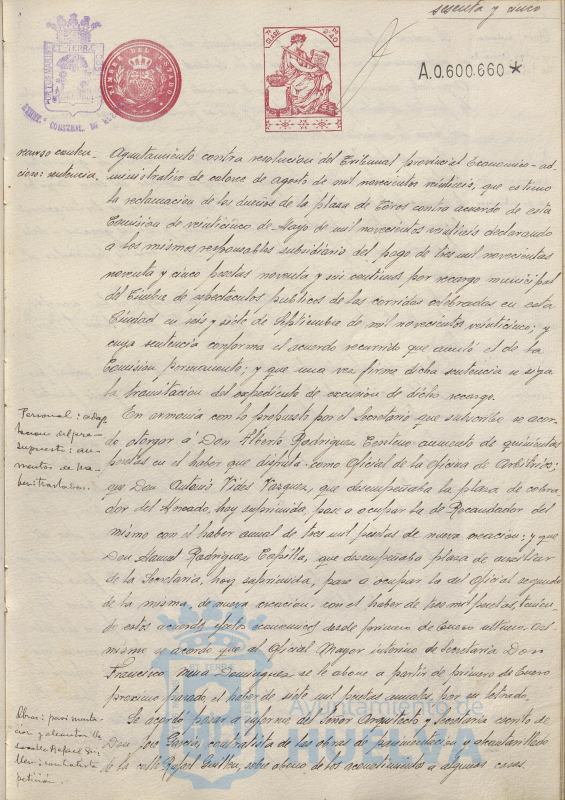 sesenta y cinco
TIMBRE DEL ESTADO
7ª CLASE
A.0.600.660*
recurso conten-
cioso: sentencia.
Ayuntamiento contra resolución del Tribunal provincial Economico-ad-
ministrativo de catorce de agosto de mil novecientos veintiseis, que estimo
la reclamación de los dueños de la plaza de Toros contra acuerdo de esta
Comision de veinticinco de Mayo de mil novecientos veintiseis declarando
a los mismos responsables subsidiario del pago de tres mil novecientas
noventa y cinco pesetas noventa y seis centimos por recargo municipal
del Timbre de espectaculos publicos de las corridas celebradas en esta
Ciudad en seis y siete de Septiembre de mil novecientos veinticinco; y
cuya sentencia confirma el acuerdo recurrido que anuló el de la
Comisión permanente; y que una vez firme dicha sentencia se siga
la tramitación del expediente de excusion de dicho recargo.
Personal: adap
tacion del pre-
supuesto: au-
mentos de ha-
beres
En armonia con lo propuesto por el Secretario que subscribe se acor-
do otorgar a Don Alberto Rodriguez Centeno aumento de quinientas
pesetas en el haber que disfruta como Oficial de la Oficina de Arbitrios;
que Don Antonio Vides Vazquez, que desempeñaba la plaza de cobra-
dor del Mercado, hoy suprimida, pase a ocupar la de Recaudador del
mismo con el haber anual de tres mil pesetas de nueva creacion; y que
Don Manuel Rodriguez Capilla, que desempeñaba plaza de auxiliar
de la Secretaria, hoy suprimida, pase a ocupar la de Oficial segundo
de la misma, de nueva creacion, con el haber de tres mil pesetas, tenien-
do estos acuerdos efectos economicos desde primero de Enero ultimo. Asi-
mismo se acordo que al Oficial Mayor interino de Secretaria Don
Francisco Mora Dominguez se le abone a partir de primero de Enero
proximo pasado, el haber de siete mil pesetas anuales, por ser letrado.
Obras: pavimenta-
cion y alcantarilla
calle Rafael Gui-
llen: contratista
petición.
Se acordo pasar a informe del Señor Arquitecto y Secretaria escrito de
Don Jose Garcia, contratista de las obras de pavimentacion y alcantarillado
de la calle Rafael Guillen, sobre abono de las acometimientos a algunas casas.
Ayuntamiento de
HUELVA